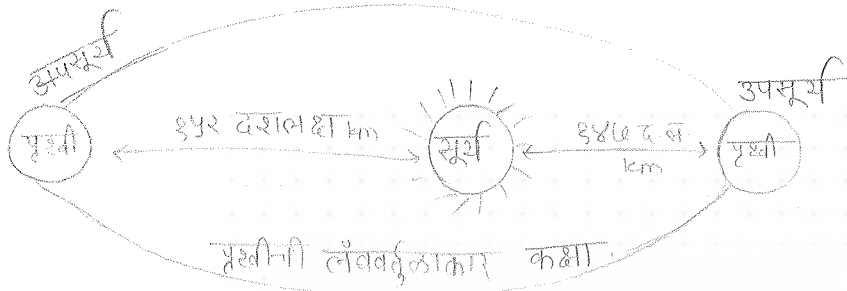 अपसूर्य
उपसूर्य
पृथ्वी
१५२ दशलक्ष km
सूर्य
१४७ द.ल.
km
पृथ्वी
पृथ्वीची लंबवर्तुळाकार कक्षा.